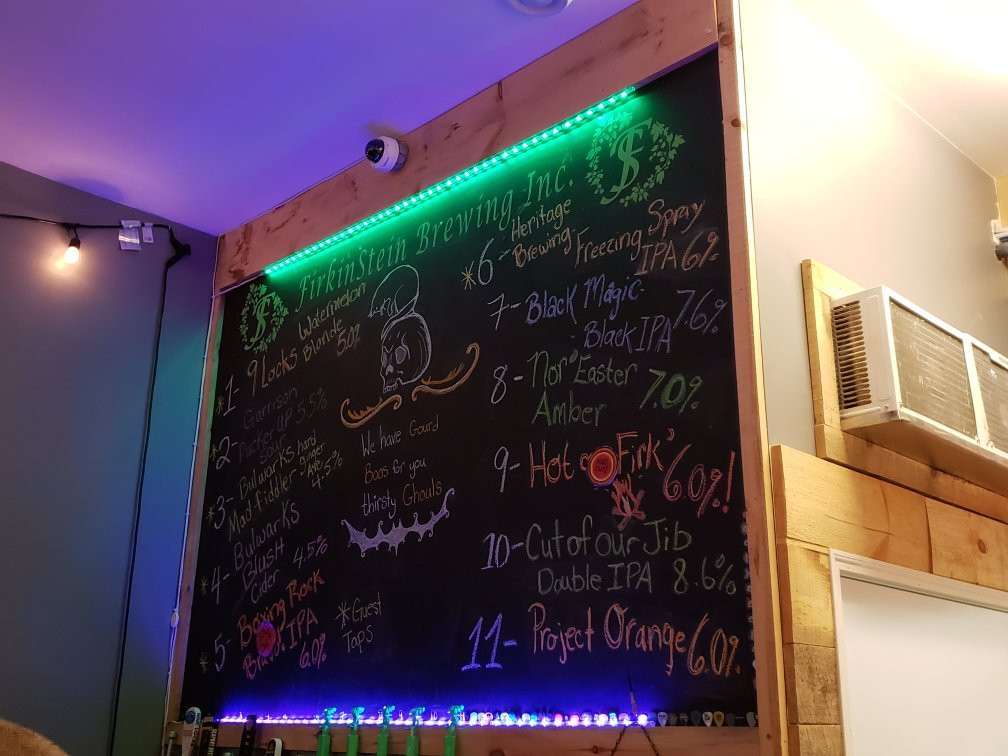 FirkinStein Brewing Inc.
*1- 9 Locks Watermelon
Blonde 5.0%
*2- Garrison
Pucker UP 5.5%
Sour
*3- Bulwarks hard
Mad fiddler ginger
Ale 4.5%
*4- Bulwarks
Blush
Cider 4.5%
*5- Boxing Rock
IPA
6.0%
We have Gourd
Boos for you
thirsty Ghouls
*Guest
Taps
*6- Heritage
Brewing Freezing Spray
IPA 6%
7- Black Magic
Black IPA 7.6%
8- Nor'Easter
Amber 7.0%
9- Hot Firk' 6.0%!
10- Cut of our Jib
Double IPA 8.6%
11- Project Orange 6.0%